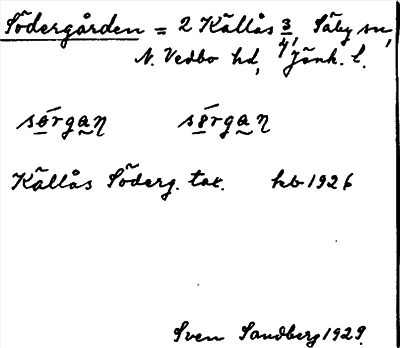 Södergården = 2 Källås 3/4, Säby sn,
N. Vedbo hd, Jönk. l.
sǿrgaɳ sǿrgaɳ
Källås Söderg. tal. hb 1926
Sven Sandberg 1929.